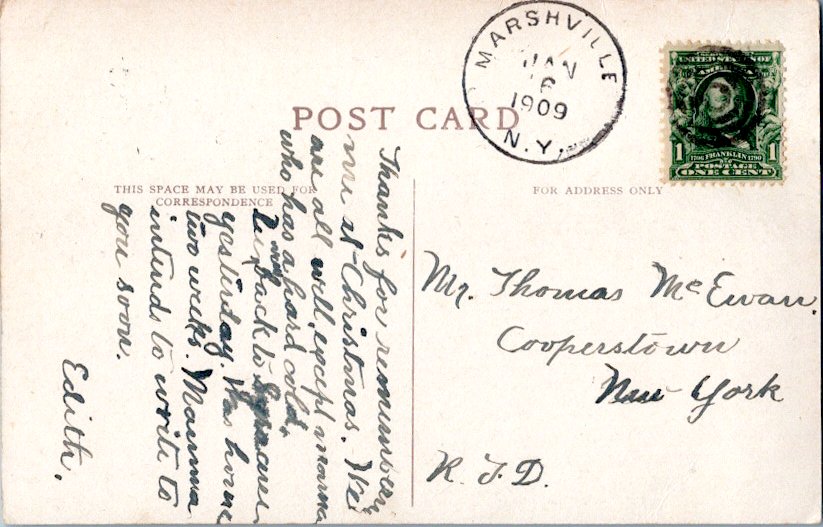 MARSHVILLE
JAN
6
1909
N.Y.
UNITED STATES OF
AMERICA
1 1706 FRANKLIN 1790 1
POSTAGE
ONE CENT
POST CARD
THIS SPACE MAY BE USED FOR
CORRESPONDENCE
FOR ADDRESS ONLY
Thanks for remembering
me at Christmas. We
are all well except mama
who has a hard cold.
back to Syracuse
yesterday. Was home
two weeks. Mamma
intends to write to
you soon.
Edith.
Mr. Thomas McEwan.
Cooperstown
New York
R.F.D.